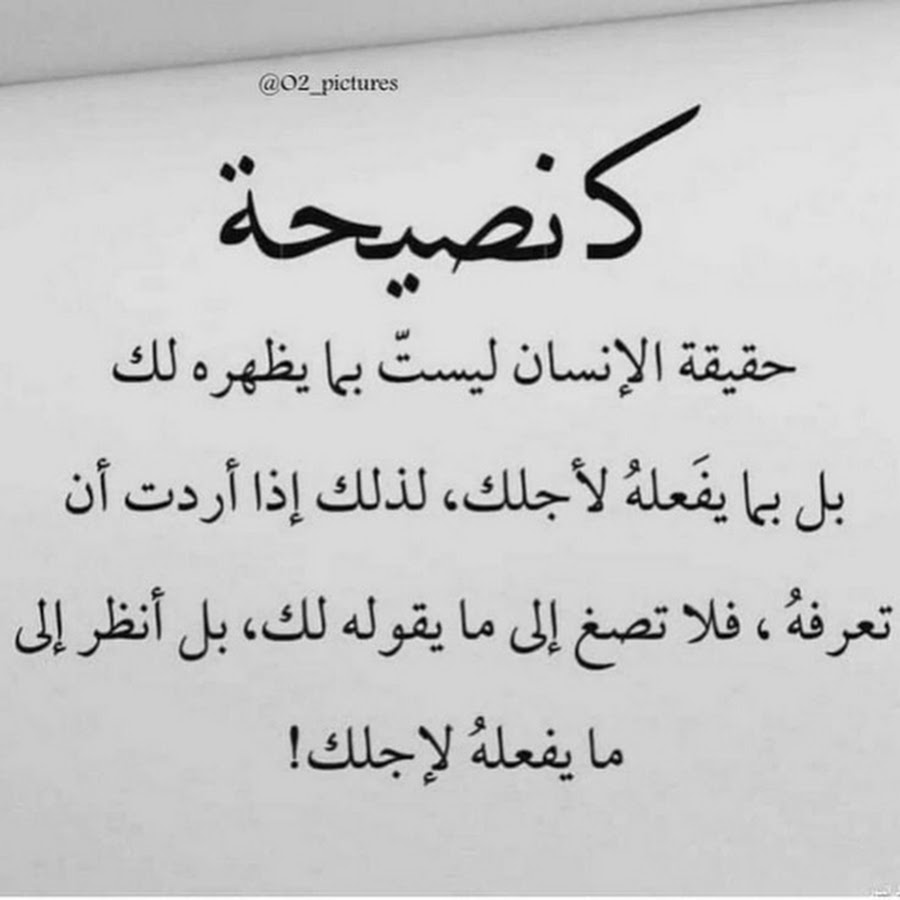 @O2_pictures
كنصيحة
حقيقة الإنسان ليستّ بما يظهره لك
بل بما يفَعلهُ لأجلك، لذلك إذا أردت أن
تعرفهُ ، فلا تصغ إلى ما يقوله لك، بل أنظر إلى
ما يفعلهُ لإجلك!